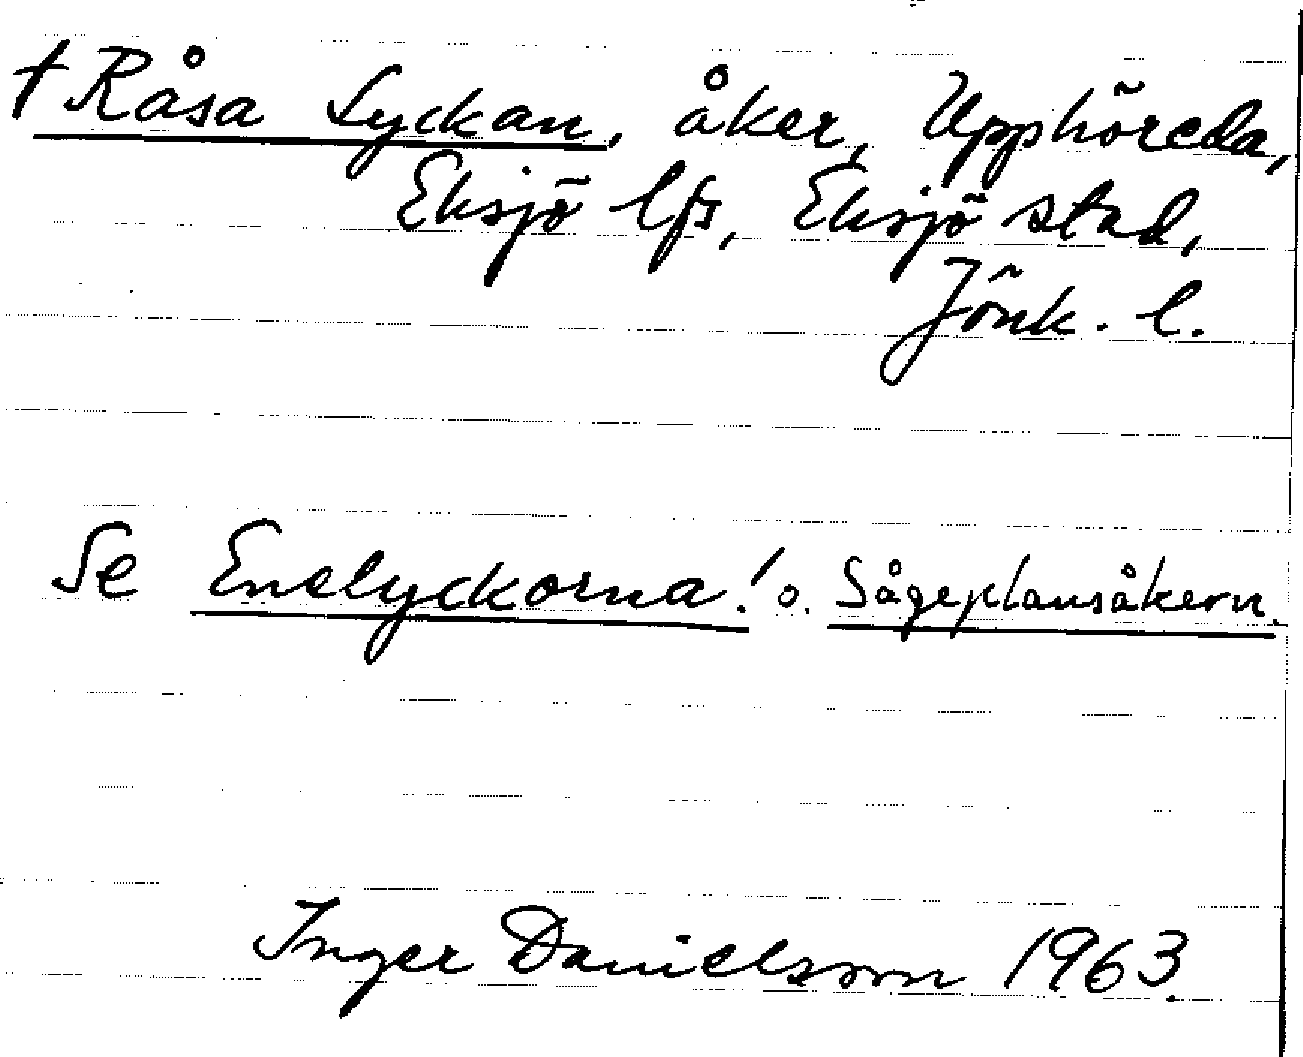 † Råsa Lyckan, åker, Upphöreda,
Eksjö lfs, Eksjö stad,
Jönk. l.
Se Enelyckorna! o. Sågeplansåkern.
Inger Danielsson 1963.